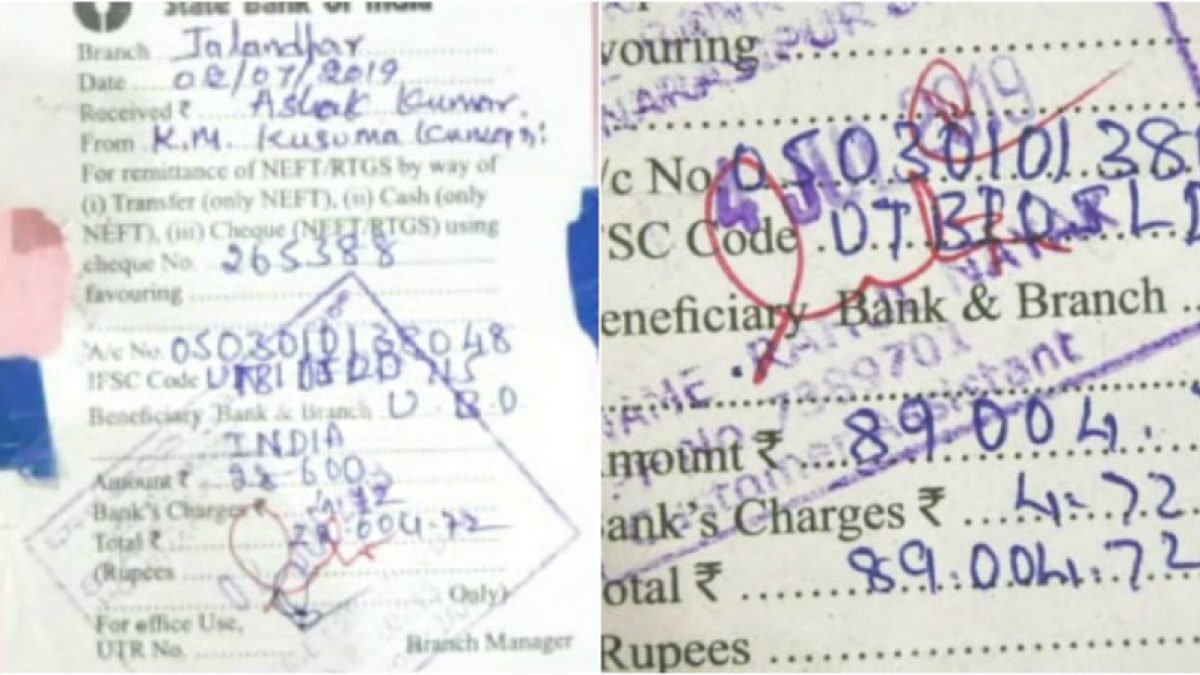 State Bank of India
Branch Jalandhar
Date 02/07/2019
Received ₹ Ashok Kumar.
From K.M. Kusuma
For remittance of NEFT/RTGS by way of
(i) Transfer (only NEFT), (ii) Cash (only
NEFT), (iii) Cheque (NEFT/RTGS) using
cheque No. 265388
favouring
A/c No. 0503010138048
IFSC Code
Beneficiary Bank & Branch U.B.O
INDIA
Amount ₹ 600
Bank's Charges ₹ 4.72
Total ₹ 004.72
(Rupees
Only)
For office Use,
UTR No.
Branch Manager
vouring
2019
/c No. 0503010138
4 JUL
SC Code UTBI0
eneficiary Bank & Branch
NAME
7389701
Assistant
mount ₹ 89004.
ank's Charges ₹ 4.72
otal ₹ 89.004.72
Rupees